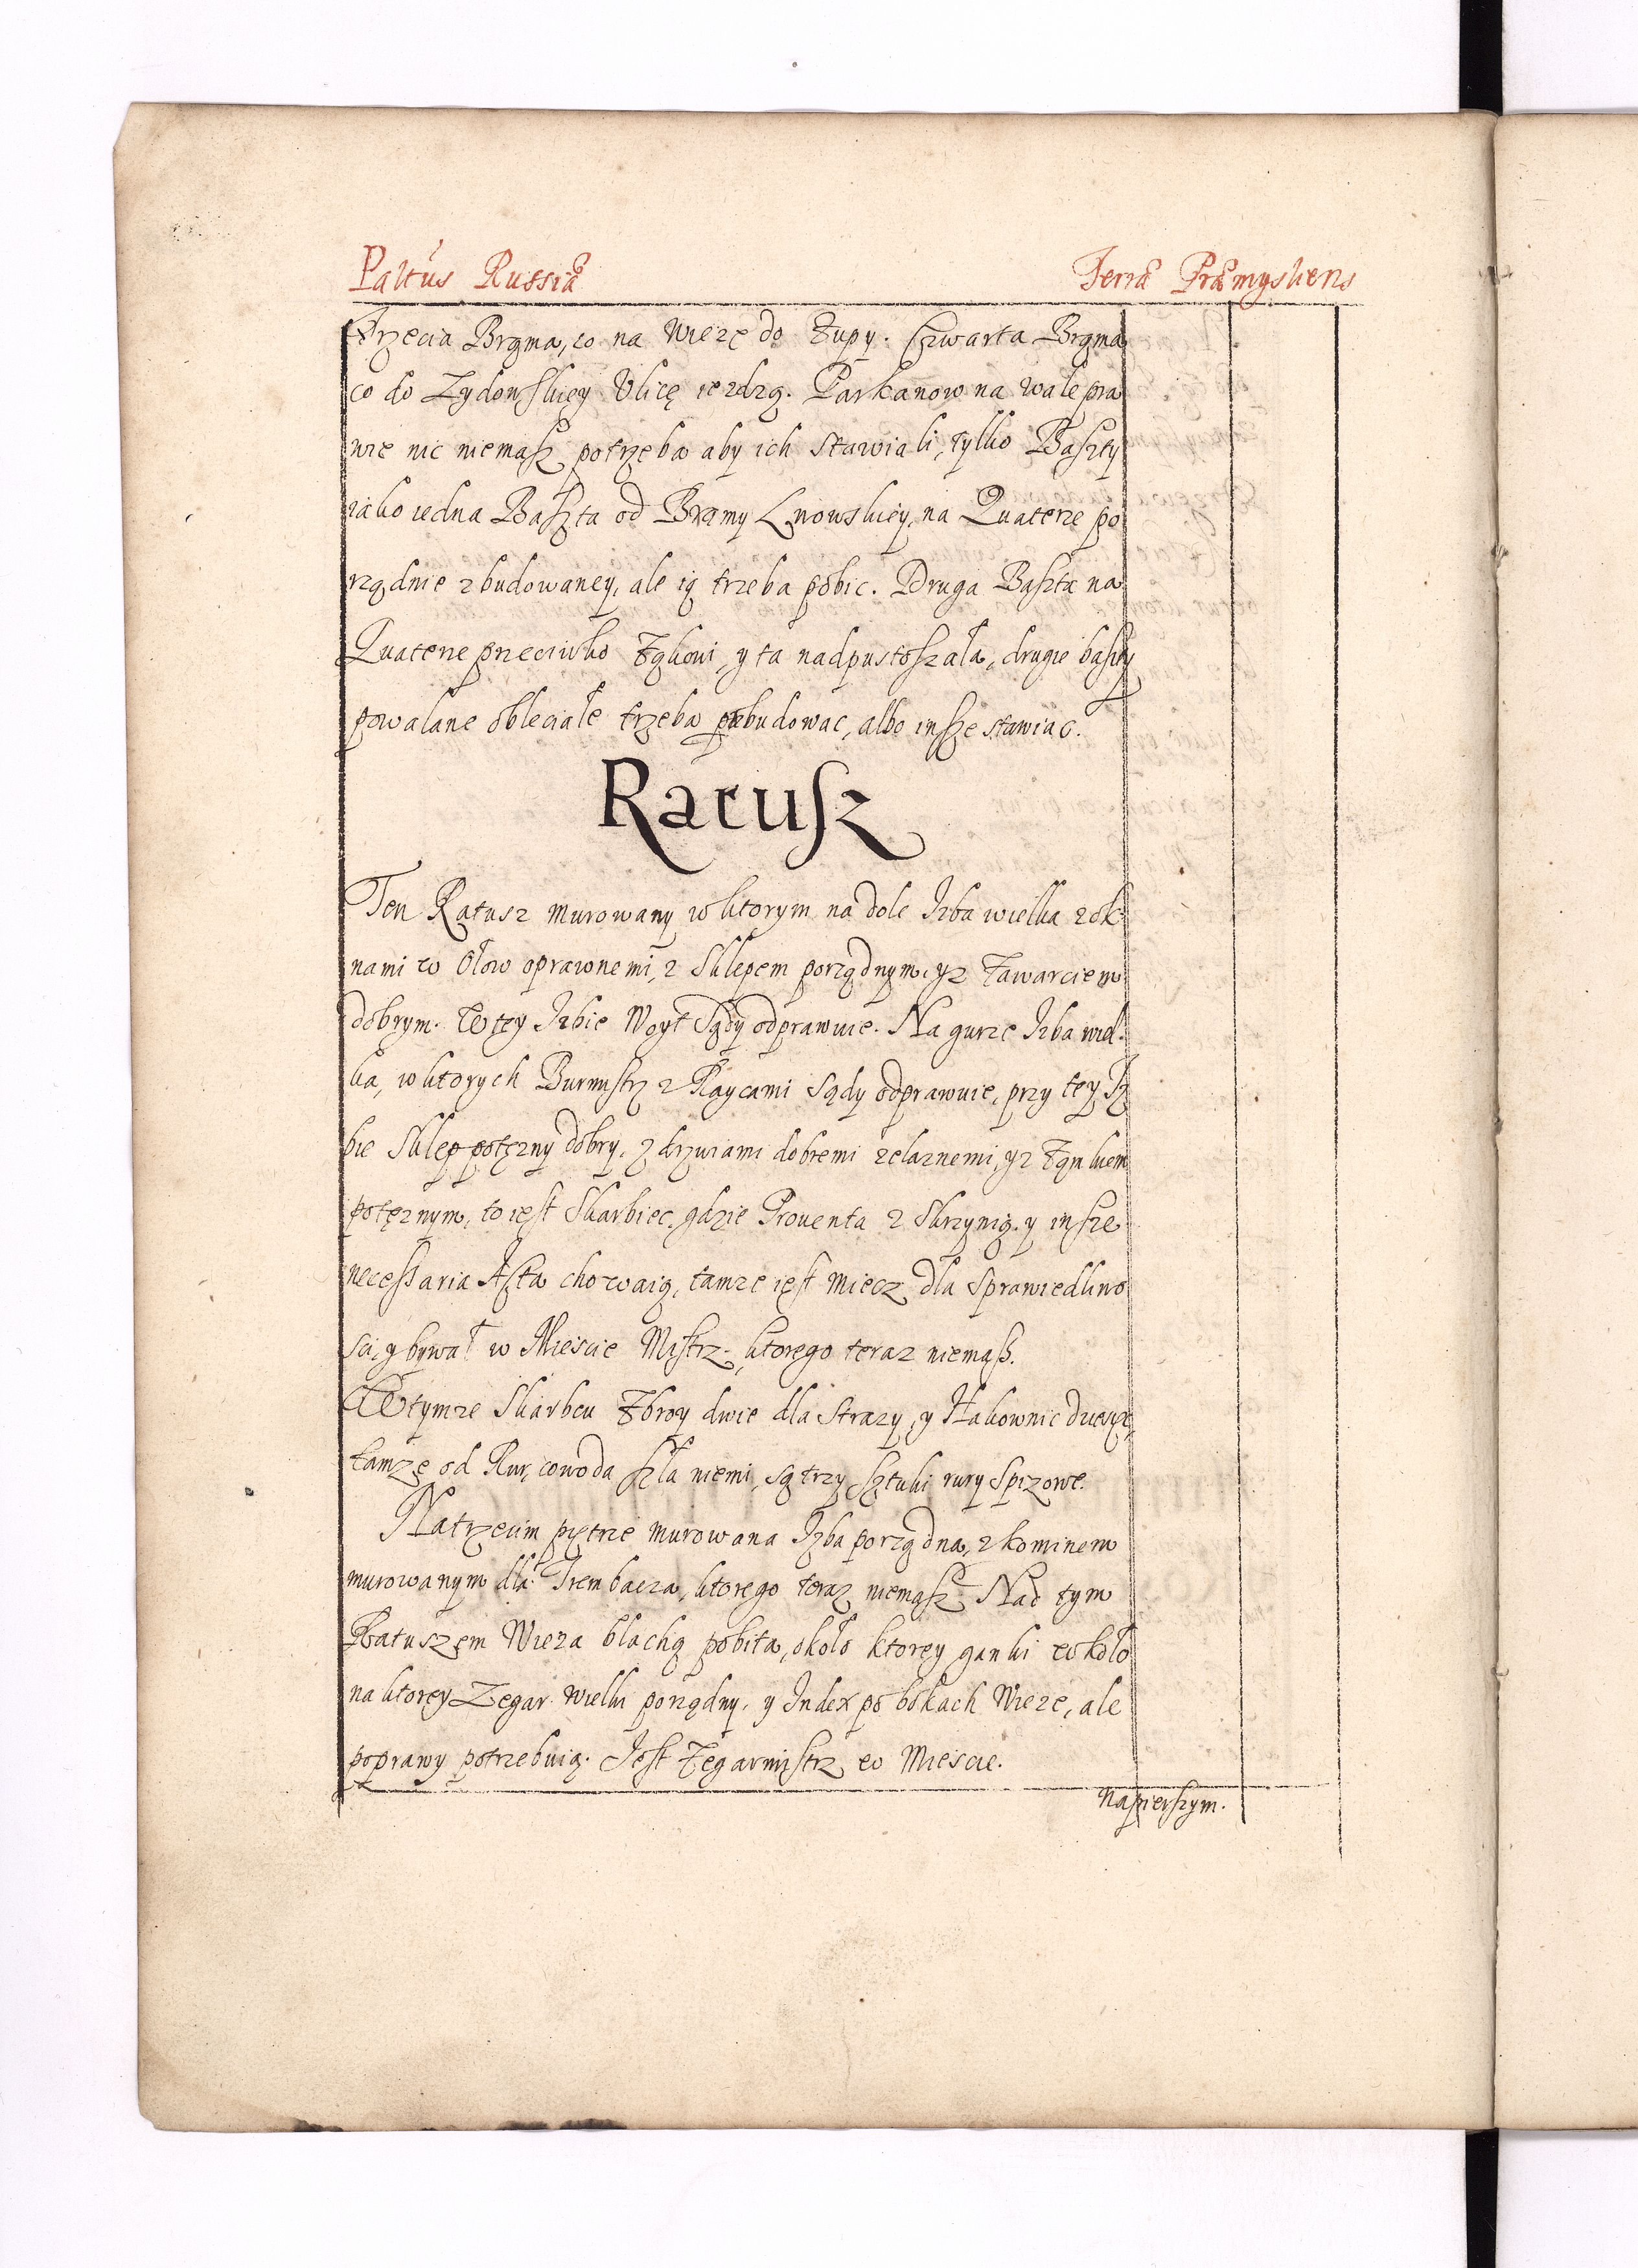 Paltus Russiæ
Terræ Præmysliens
Trzecia Brąma, co na Wieze do Zupy. Czwarta Brąma
co do Zydowskiey Ulicę iezdzą. Parkanow na wale pra
wie nic niemasz potrzeba aby ich stawiali, tylko Baszty
iako iedna Baszta od Bramy Lwowskiey, na Quaterze po
rządnie zbudowaney, ale ią trzeba pobic. Druga Baszta na
Quaterze przeciwko Ząkowi, y ta nadpustoszała, drugie baszty
powalane obleciałe trzeba pobudowac, albo insze stawiac.
Ratusz
Ten Ratusz murowany w ktorym na dole Izba wielka z ok:
nami w Ołow oprawnemi, z Sklepem porządnym, y z Zawarciem
dobrym. W tey Izbie Woyt Sądy odprawuie. Na gurze Izba wiel:
ka, w ktorych Burmistrz z Raycami Sądy odprawuie, przy tey Iz
bie Sklep potęzny dobry, z drzwiami dobremi zelaznemi, y z Ząmkiem
potęznym, to iest Skarbiec, gdzie Proventa z Skrzynią. y insze
necessaria Asta chowaią, tamze iest Miecz dla Sprawiedliwo
sci, y bywał w Miescie Mistrz, ktorego teraz niemasz.
W tymze Skarbcu Zbroy dwie dla Strazy, y Hakownic
tamze od Rur, co woda szła niemi, są trzy sztuki rury Spizowe.
Na trzecim piętrze murowana Izba porządna, z kominem
murowanym dla Trembacza, ktorego teraz niemasz. Nad tym
Ratuszem Wieza blachą pobita, około ktorey ganki wkoło
na ktorey Zegar Wielki porządny, y Index po bokach Wieze, ale
poprawy potrzebuią. Jest Zegarmistrz w Miescie.
Napierszym.